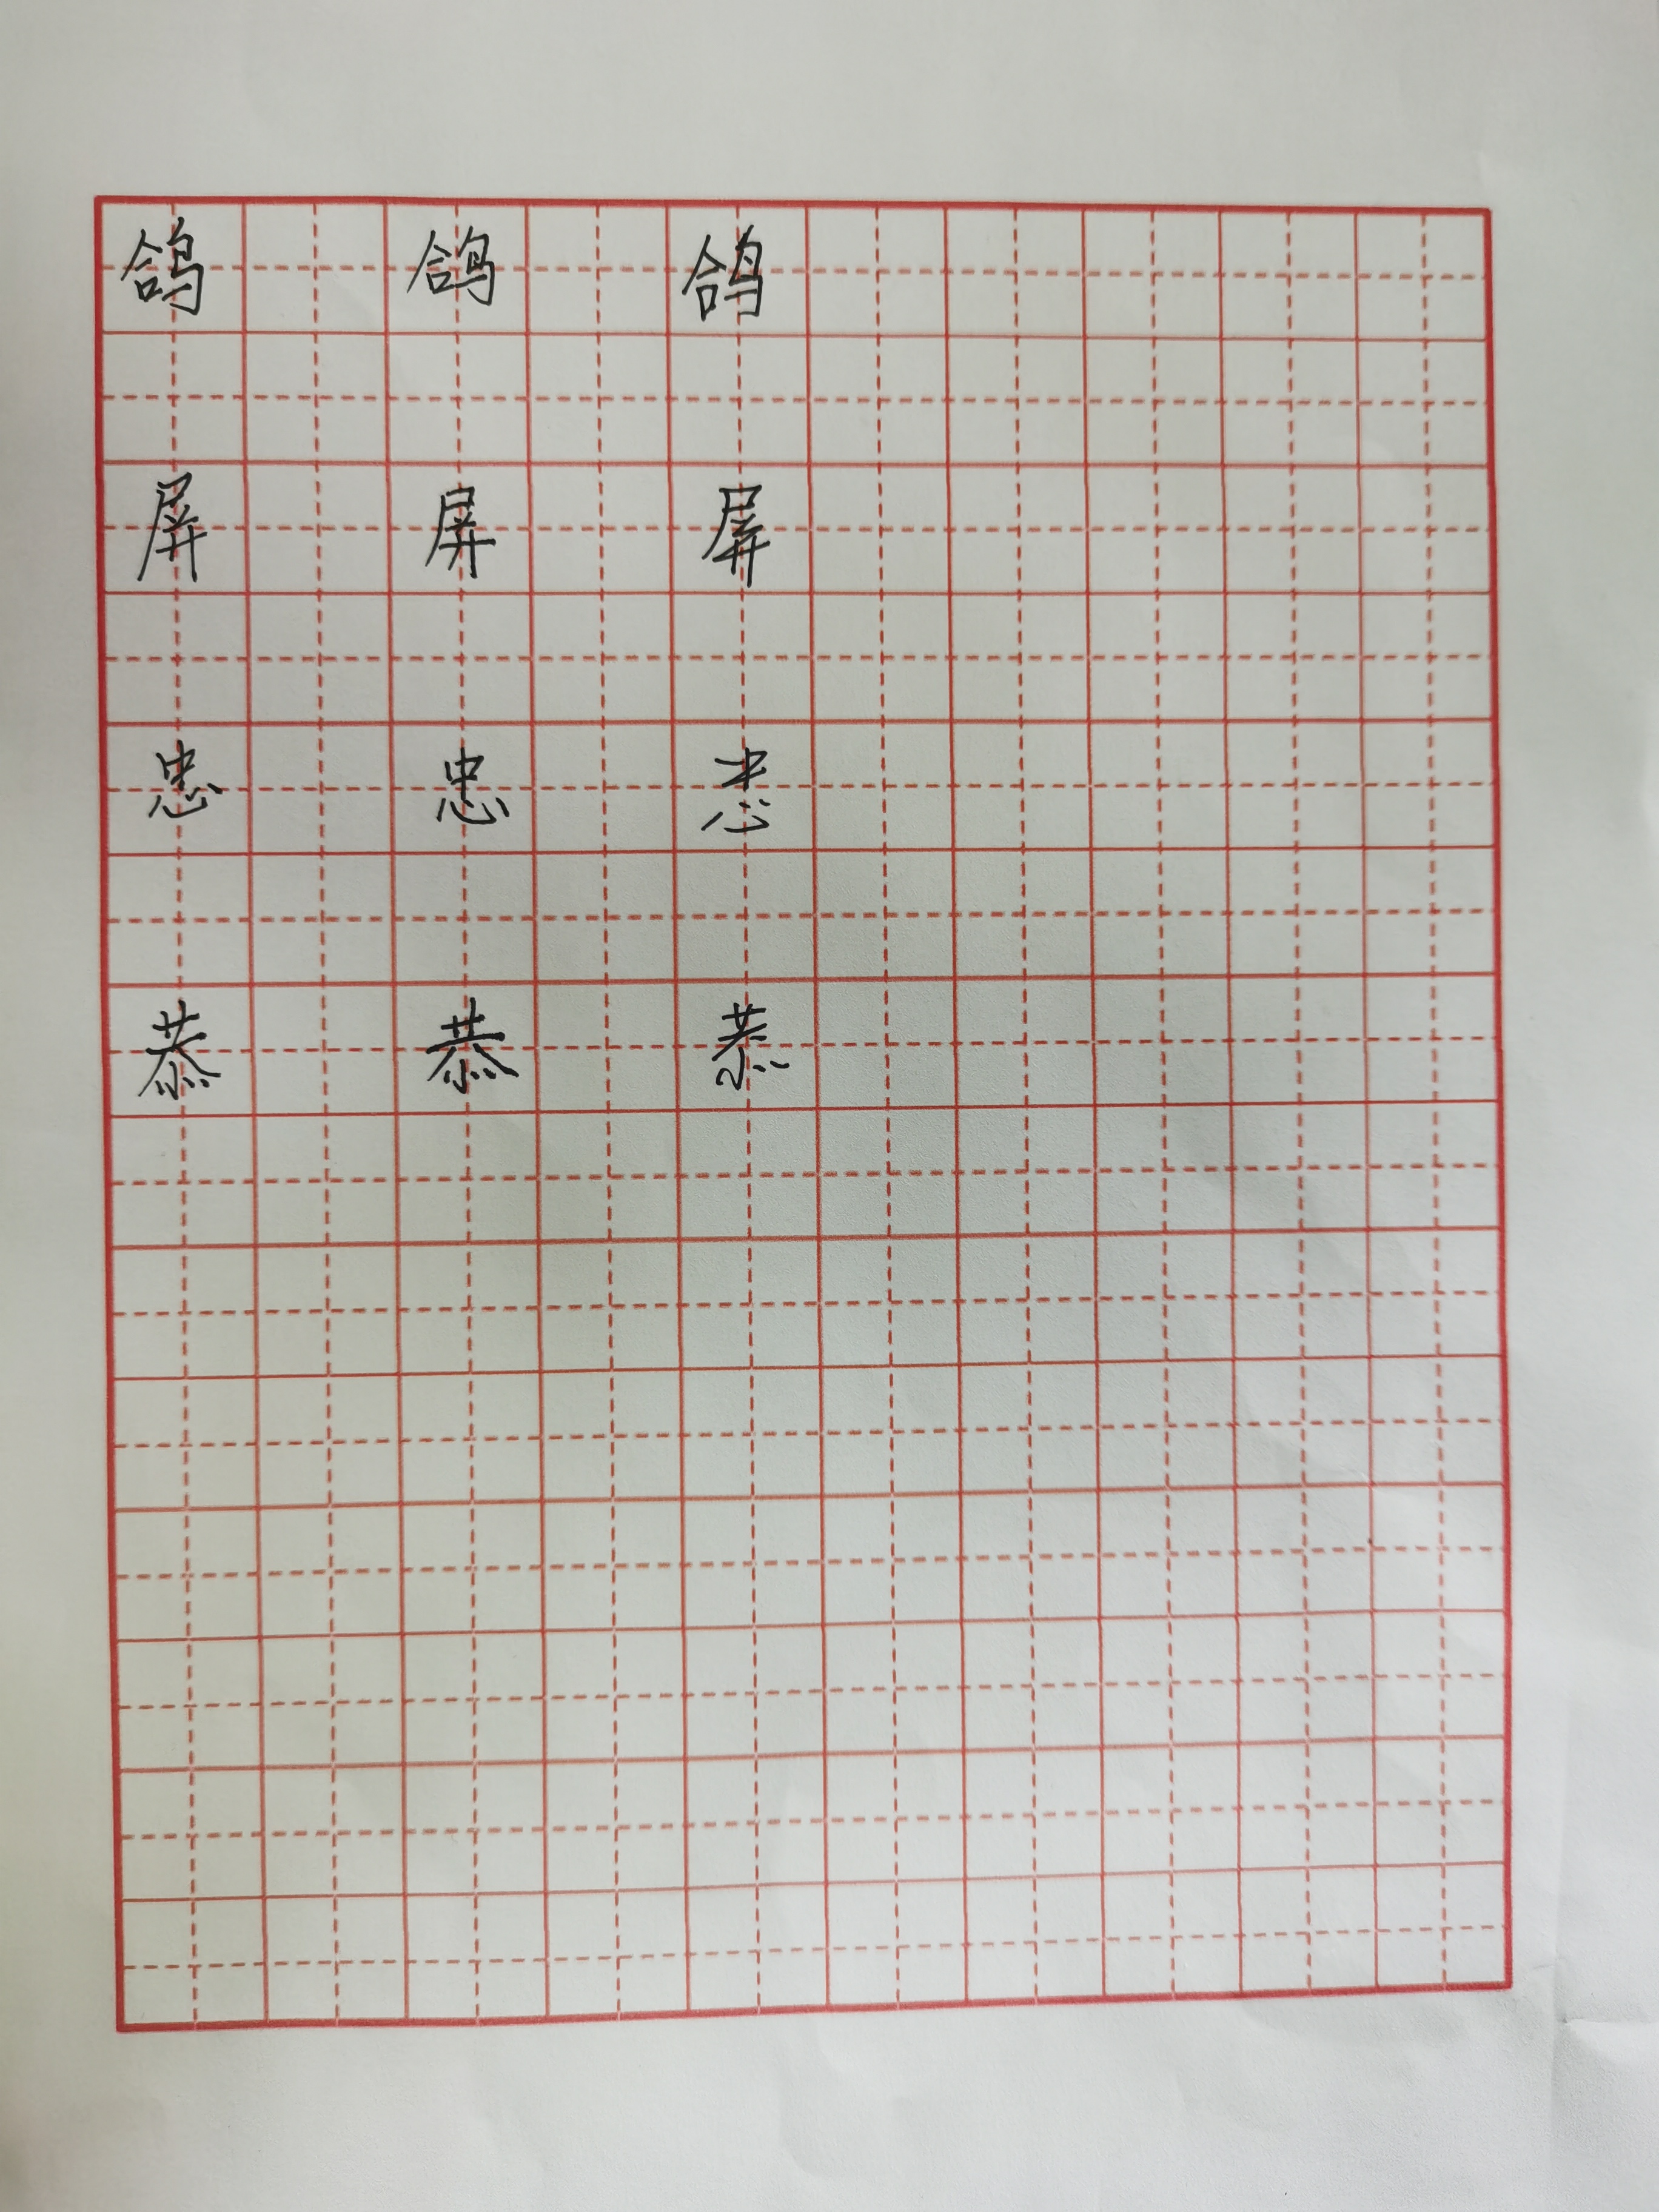 鸽 鸽 鸽
屏 屏 屏
忠 忠 忠
恭 恭 恭